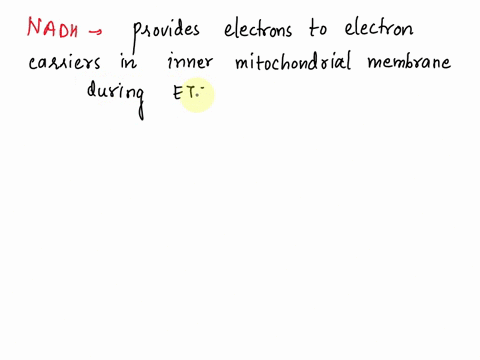 NADH → provides electrons to electron
carriers in inner mitochondrial membrane
during ET